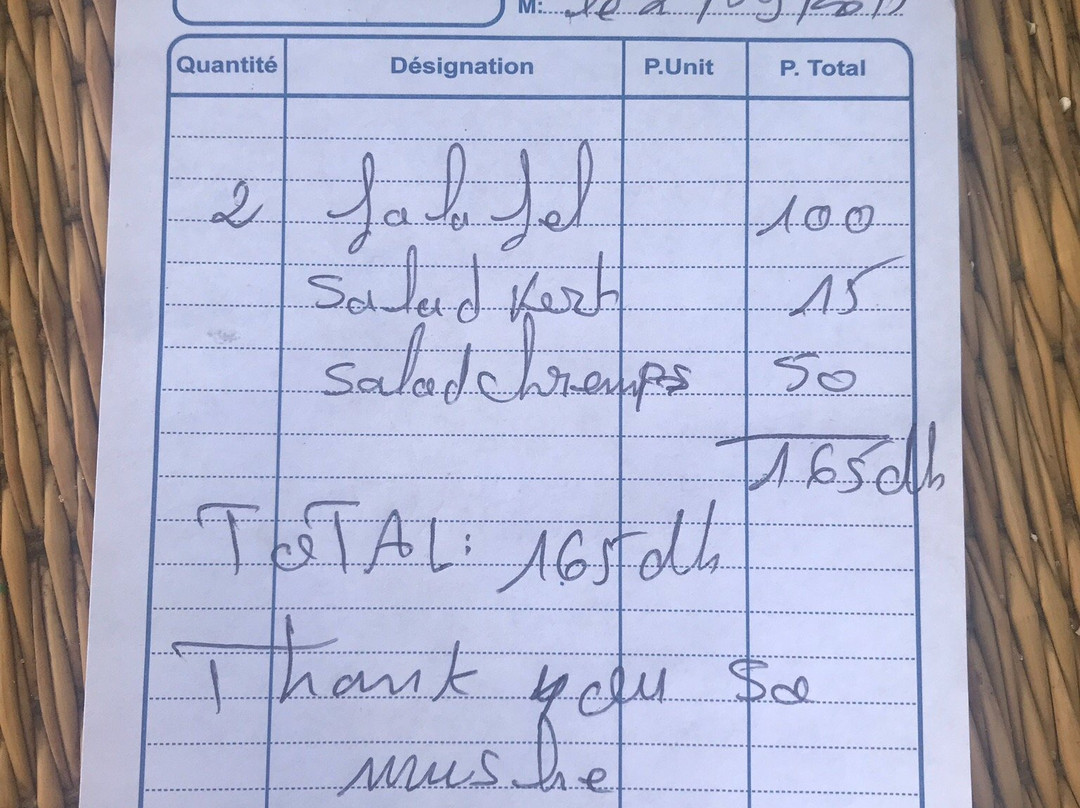 M:
Quantité Désignation P.Unit P. Total
2 falafel 100
Salad Kert 15
Salad chremps 50
165dh
TOTAL: 165dh
Thank you So
mushe